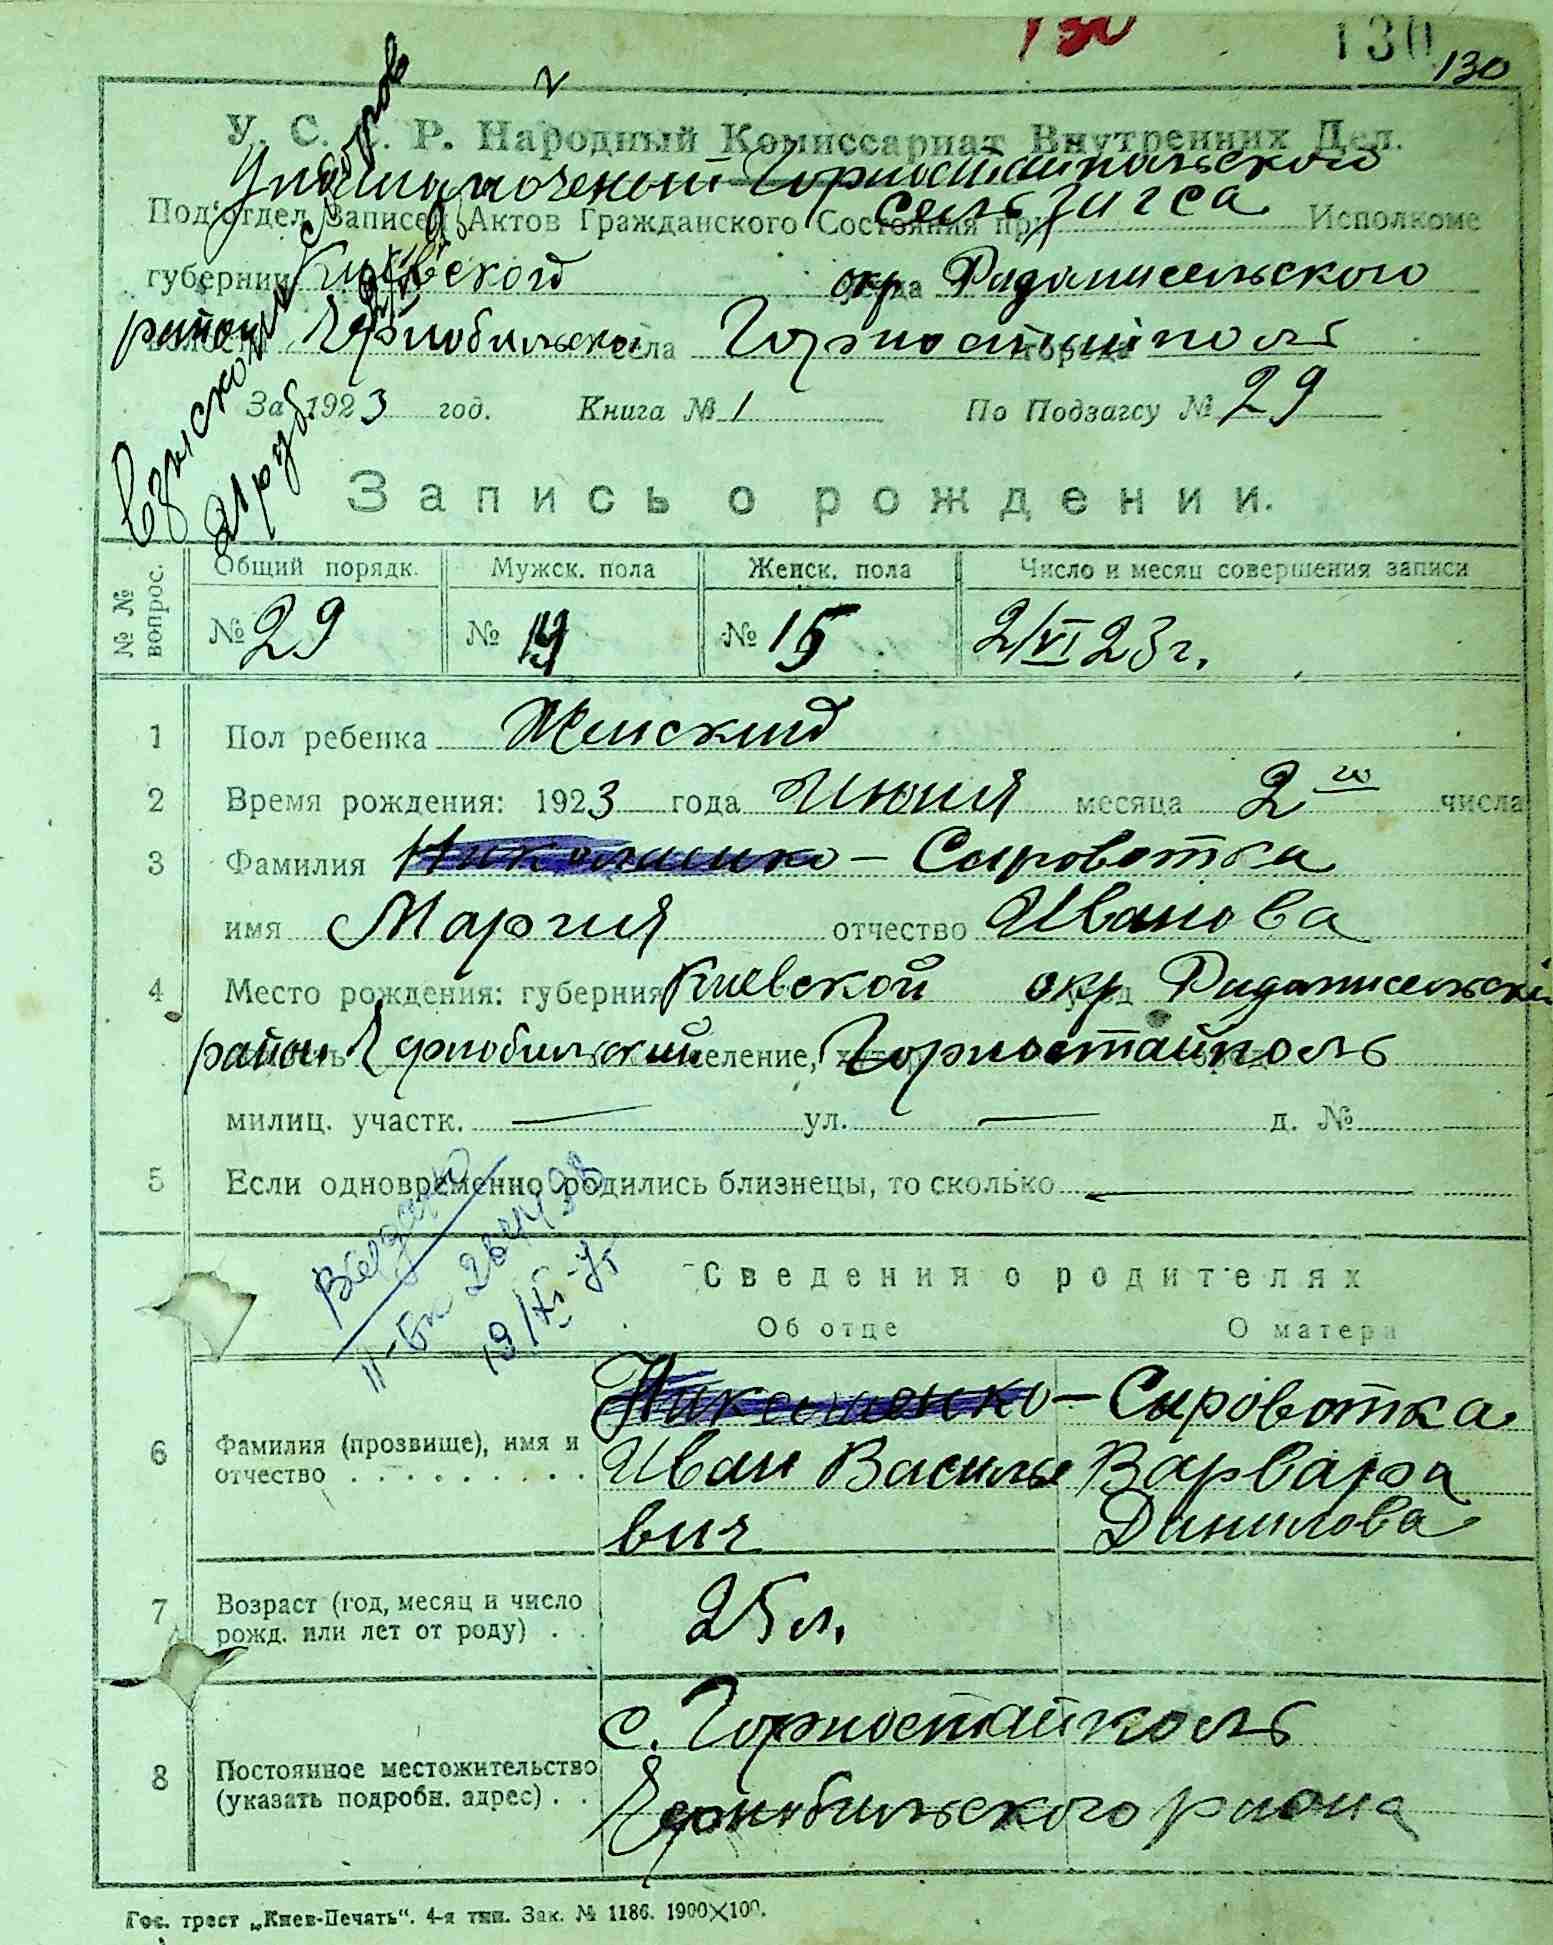 130 130 130
У. С. С. Р. Народный Комиссариат Внутренних Дел.
Уполномоченый Горностайпольского
сельзагса
Под'отдел Записей Актов Гражданского Состояния при Исполкоме
губернии Киевской окр Радомисельского
район Чернобильский села Горностайполь
За 1923 год. Книга № 1 По Подзагсу № 29
Запись о рождении.
№ № вопрос.
Общий порядк. Мужск. пола Женск. пола Число и месяц совершения записи
№ 29 № 19 № 15 2/VI 23 г.
1 Пол ребенка Женский
2 Время рождения: 1923 года Июня месяца 2го числа
3 Фамилия Николаенко – Сыроватка
имя Мария отчество Иванова
4 Место рождения: губерния Киевской окр Радомисельский
район Чернобильский селение, Горностайполь
милиц. участк. — ул. — д. №
5 Если одновременно родились близнецы, то сколько —
Выдано
19/XI-75
Сведения о родителях
Об отце О матери
Николаенко – Сыроватка
6 Фамилия (прозвище), имя и отчество Иван Василье Варвара
вич Данилова
7 Возраст (год, месяц и число рожд. или лет от роду) 25 л.
с. Горностайполь
8 Постоянное местожительство (указать подробн. адрес)
Чернобильского района
Гос. трест „Киев-Печать“. 4-я тип. Зак. № 1186. 1900×100.